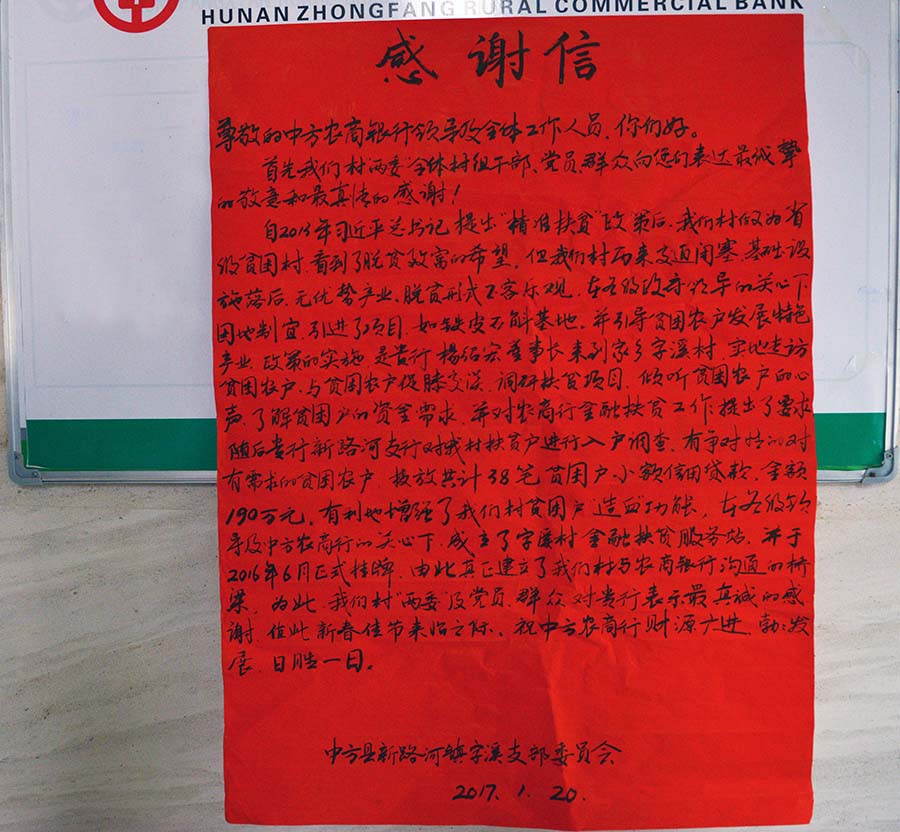 HUNAN ZHONGFANG RURAL COMMERCIAL BANK
感谢信
尊敬的中方农商银行领导及全体工作人员,你们好。
首先我们村两委全体村组干部、党员、群众向您们表达最诚挚
的敬意和最真情的感谢!
自2013年习近平总书记提出"精准扶贫"政策后,我们村作为省
级贫困村,看到了脱贫致富的希望。但我们村历来交通闭塞,基础设
施落后,无优势产业、脱贫形式不容乐观,在各级政府领导的关心下
因地制宜,引进了项目,如铁皮石斛基地,并引导贫困农户发展特色
产业,政策的实施,是贵行杨绍宏董事长来到家乡字溪村,实地走访
贫困农户,与贫困农户促膝交谈,调研扶贫项目,倾听贫困农户的心
声,了解贫困户的资金需求,并对农商行金融扶贫工作提出了要求
随后贵行新路河支行对我村扶贫户进行入户调查,有争对性的对
有需求的贫困农户,投放共计38笔贫困户小额信用贷款,金额
190万元。有利地增强了我们村贫困户"造血"功能,在各级领
导及中方农商行的关心下成立了字溪村金融扶贫服务站,并于
2016年6月正式挂牌,由此真正建立了我们村与农商银行沟通的桥
梁,为此,我们村"两委"及党员,群众对贵行表示最真诚的感
谢,值此新春佳节来临之际,祝中方农商行财源广进,勃勃发
展,日胜一日。
中方县新路河镇字溪支部委员会
2017.1.20.